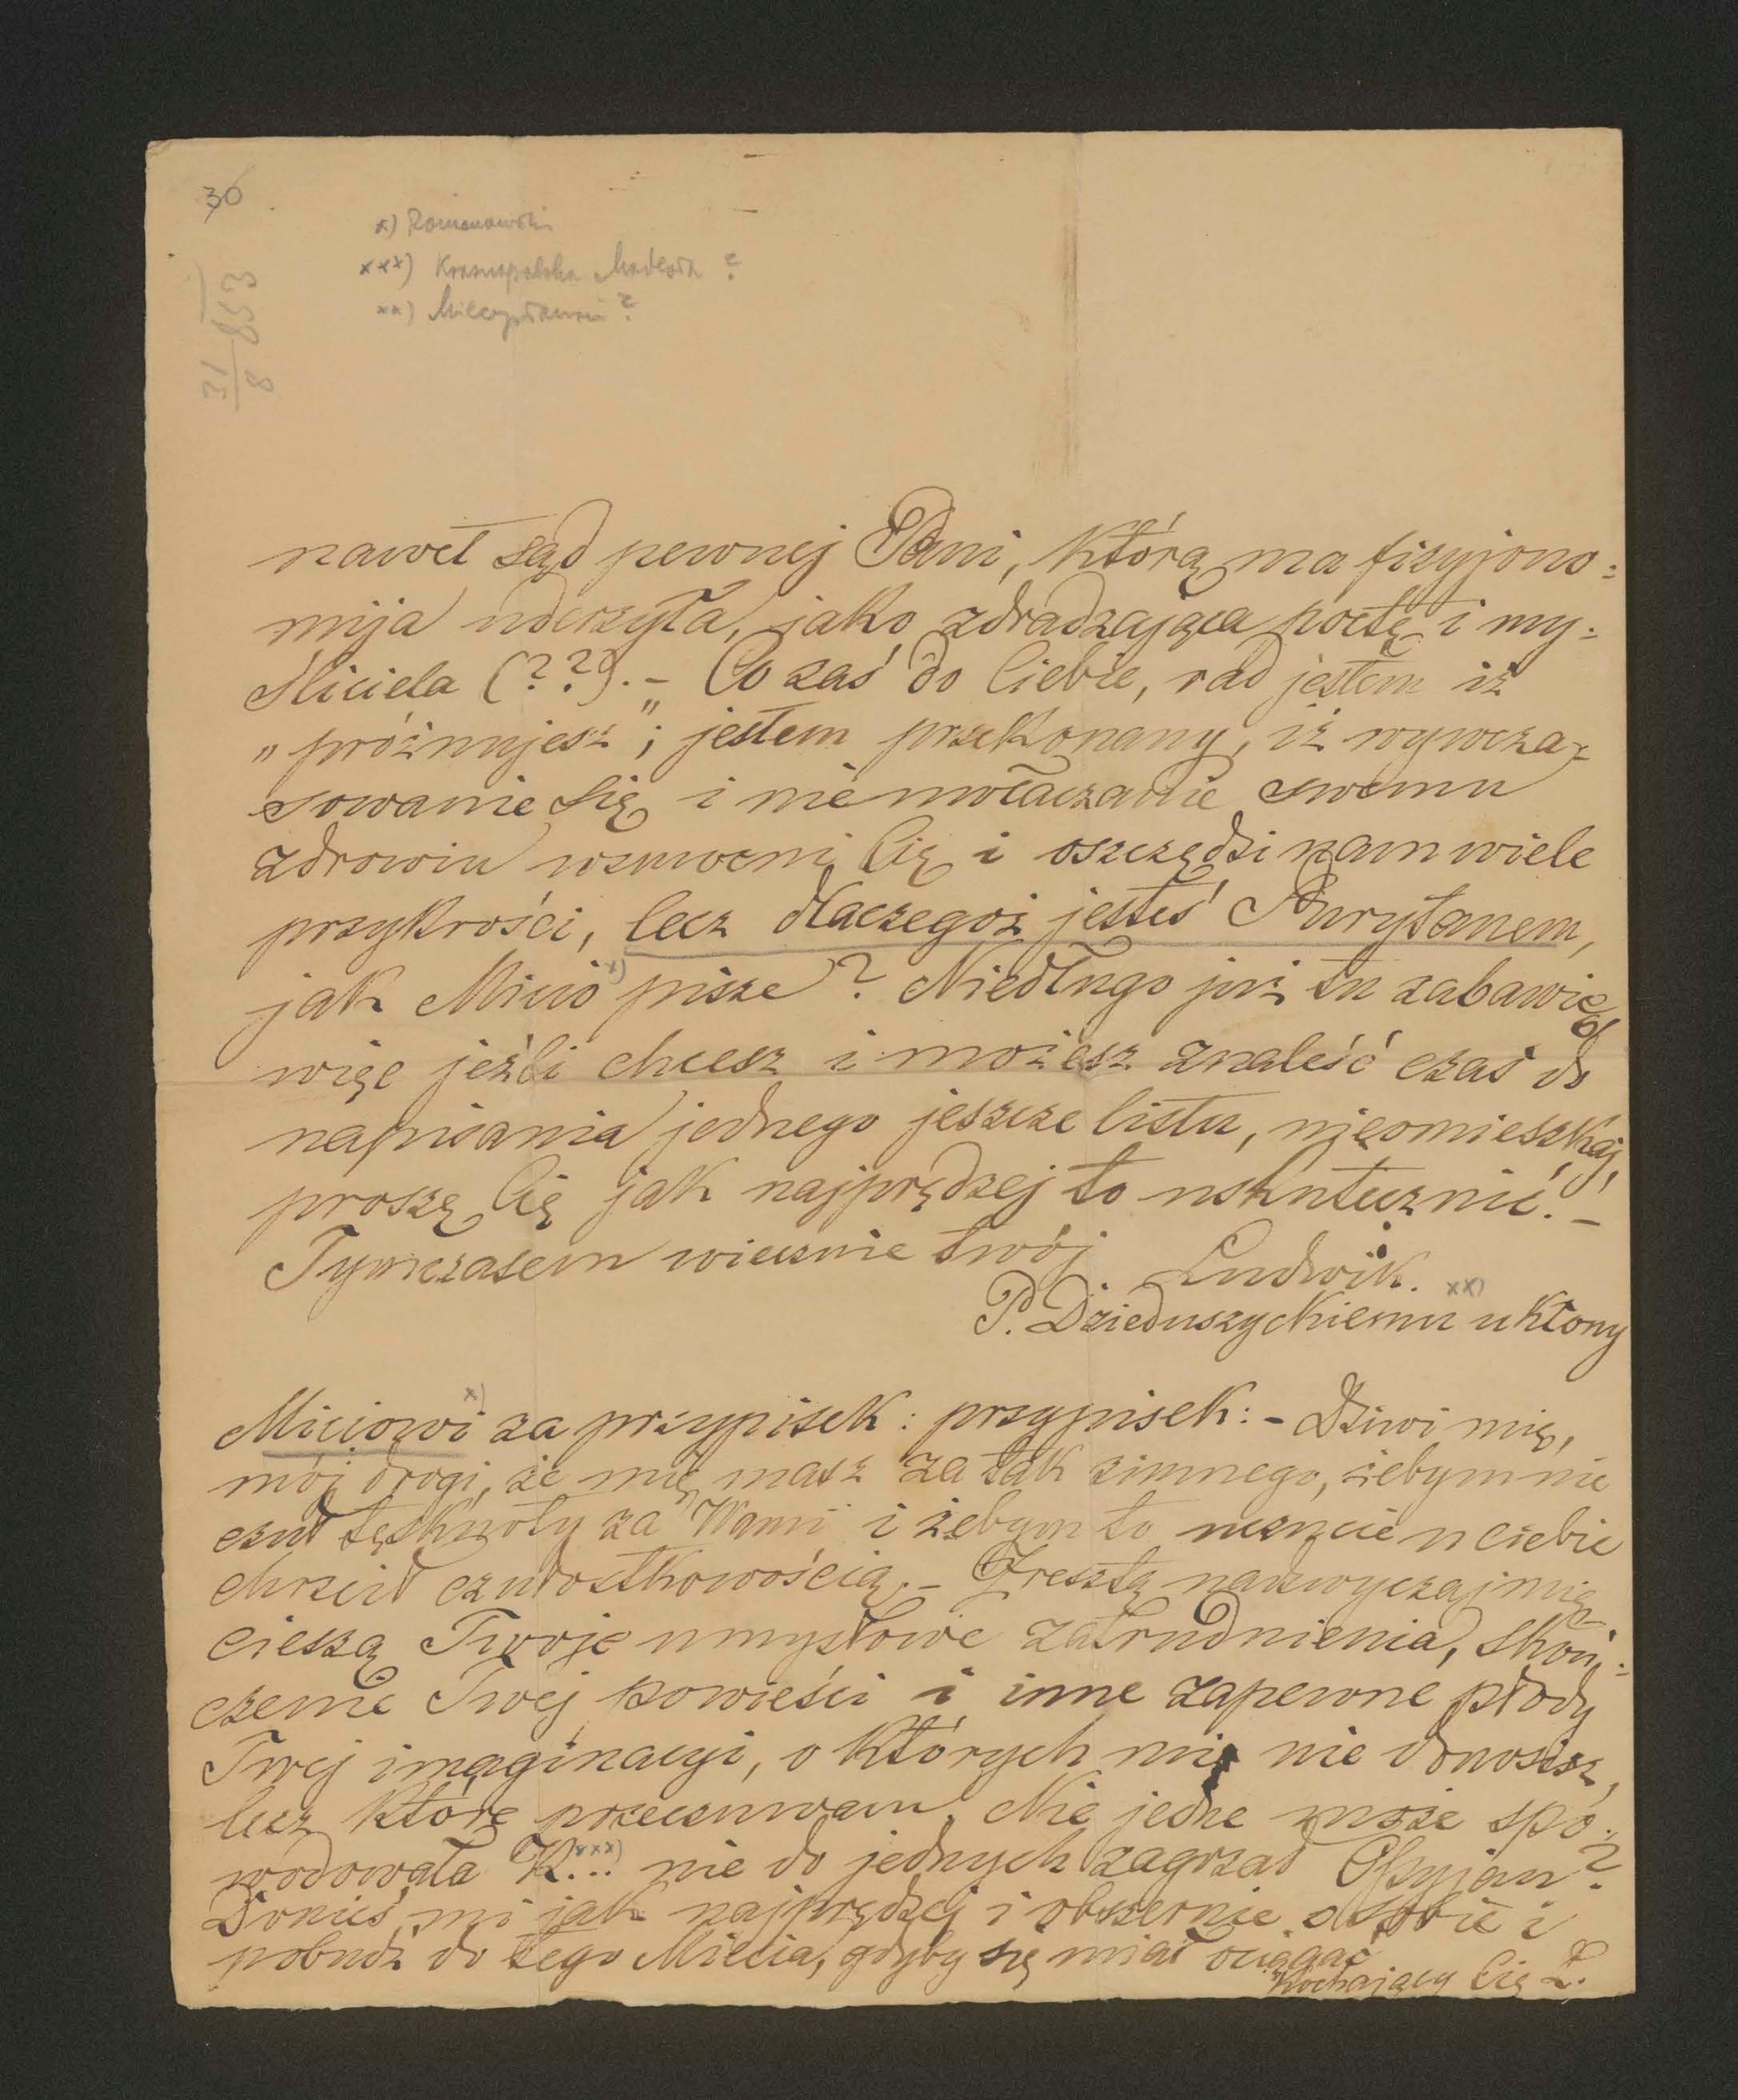 30
x) Romanowski
xxx) Krasnopolska ?
xx) Mieczysławowi ?
31/8 853
nawet sąd pewnej Pani, którą ma fizyjono=
mija uderzyła, jako zdradzająca poetę i my=
śliciela (??). – Co zaś do Ciebie, rad jestem iż
„próżnujesz"; jestem przekonany, iż wywcza=
sowanie się i nie uwłaczanie swemu
zdrowiu wzmocni Cię i oszczędzi nam wiele
przykrości, lecz dlaczegoż jesteś Purytanem,
jak Micio x) pisze? Niedługo już tu zabawię,
więc jeźli chcesz i możesz znaleść czas do
napisania jednego jeszcze listu, nieomieszkaj,
proszę Cię jak najprędzej to uskutecznić! –
Tymczasem wiecznie twój Ludwik.
P. Dzieduszyckiemu xx) ukłony
Miciowi x) za przypisek: przypisek: – Dziwi mię,
mój drogi, że mię masz za tak zimnego, żebym nie
czuł tęsknoty za Wami i żebym to uczucie u ciebie
chrzcił czułostkowością. – Zresztą nadzwyczaj mię
cieszą Twoje umysłowe zatrudnienia, skoń=
czenie Twej powieści i inne zapewne płody
Twej imaginacyi, o których mię nie donosisz,
lecz które przeczuwam. Nie jedne może spo=
wodowała K... xxx) nie do jednych zagrzał Ossyjan?
Donieś mi jak najprędzej i obszernie o sobie i
pobudź do tego Miecia, gdyby się miał ociągać
Kochający Cię L.